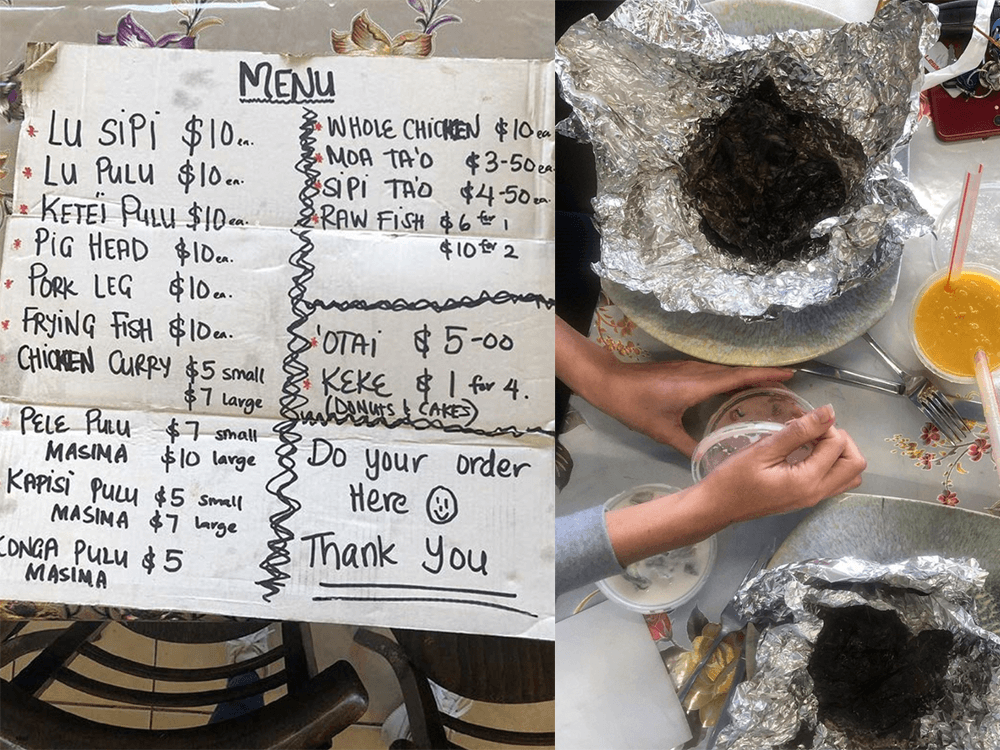 MENU
* LU SiPi $10 ea.
* LU PULU $10 ea.
* KETEÏ PULU $10 ea.
* PiG HEAD $10 ea.
* PORK LEG $10 ea.
* FRYiNG FiSH $10 ea.
CHICKEN CURRY $5 small
$7 large
* PELE PULU $7 small
MASIMA $10 large
KAPiSi PULU $5 small
MASIMA $7 large
CONGA PULU $5
MASIMA
* WHOLE CHICKEN $10 ea
* MOA TA'O $3-50 ea
* SiPi TA'O $4-50 ea.
* RAW FISH $6 for 1
$10 for 2
* 'OTAi $5-00
* KEKE $1 for 4.
(DONUTS & CAKES)
Do your order
Here ☺
Thank You